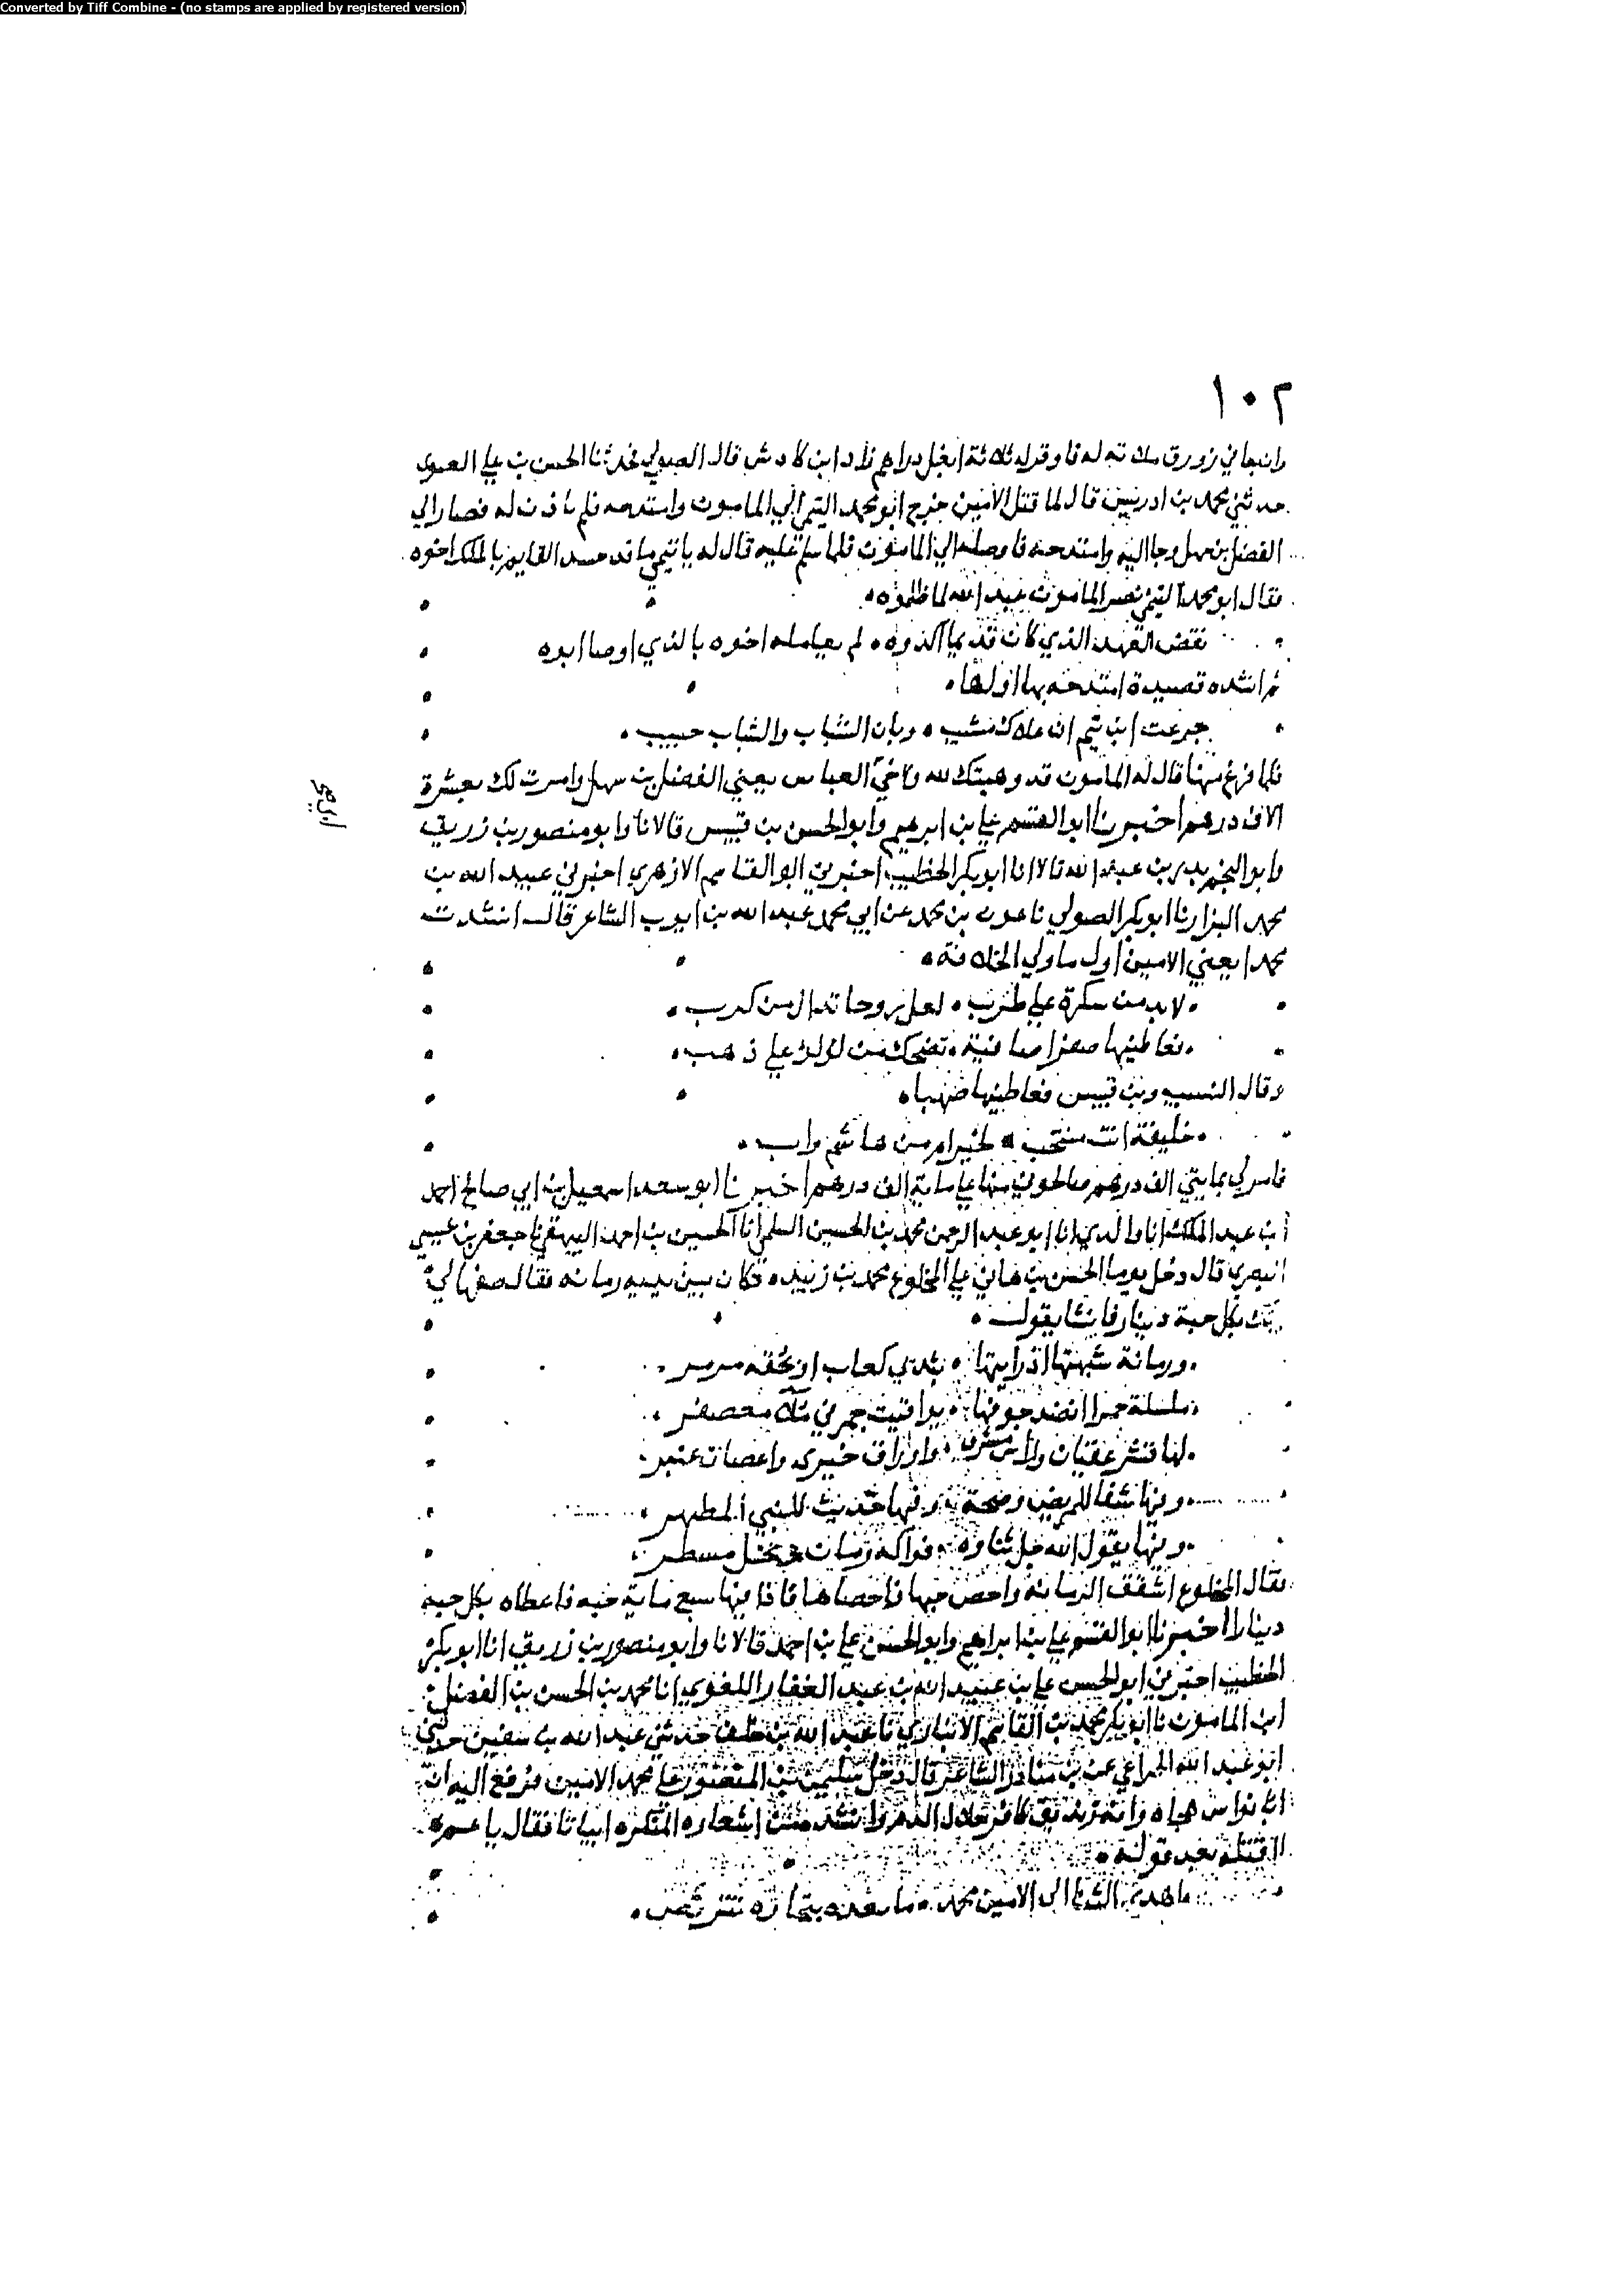 Converted by Tiff Combine - (no stamps are applied by registered version)
١٠٢
في زورق قال الصولي فحدثنا الحسن بن علي العنوي
حدثني محمد بن ادريس قال لما قتل الامين خرج ابو محمد التيمي الي المامون وامتدحه فلم ياذن له فصار الي
الفضل بن سهل ولجا اليه وامتدحه فاوصله الي المامون فلما سلم عليه قال له يا تيمي ما قد حسد القايم بالملك اخوه
فقال ابو محمد التيمي نصر المامون عبد الله لما ظلموه
نقض العهد الذي كان قديما اكدوه لم يعامله اخوه بالذي اوصا ابوه
ثم انشده قصيدة امتدحه بها اولها
جزعت ابن تيم ان علاك مشيب وبان الشباب والشباب حبيب
فلما فرغ منها قال له المامون قد وهبتك لله ولاخي العباس يعني الفضل بن سهل وامرت لك بعشرة
الاف درهم اخبرنا ابو القسم علي بن ابرهيم وابو الحسن بن قبيس قالا نا وابو منصور بن زريق
وابو النجم بدر بن عبد الله قالا انا ابو بكر الخطيب اخبرني ابو القاسم الازهري اخبرني عبيد الله بن
محمد البزار نا ابو بكر الصولي نا عون بن محمد عن ابي محمد عبد الله بن ايوب الشاعر قال انشدت
محمدا يعني الامين اول ما ولي الخلافة
لا بد من سكرة علي طرب لعل روحا تدال من كرب
فعاطنيها صفرا صافية تضحك من لولو علي ذهب
وقال النسيب وبن قبيس فعاطنيها صهبا
خليفة انت منتخب لخير ام من هاشم واب
فامر لي بمايتي الف درهم صالحوني منها علي ماية الف درهم اخبرنا ابو سعد اسمعيل بن ابي صالح احمد
ابن عبد الملك انا والدي انا ابو عبد الرحمن محمد بن الحسين السلمي انا الحسين بن احمد البيهقي نا جعفر بن عيسي
البصري قال دخل يوما الحسن بن هاني علي المخلوع محمد بن زبيده وكان بين يديه رمانه فقال صفها لي
بكل حبة دينار فانشا يقول
ورمانة شبهتها اذ رايتها بثدي كعاب او بحقه مرمر
حمرا نضد جوفها يواقيت حمر في معصفر
لها قشر عقيان وراس مشرف واوراق خيري واغصان عنبر
وفيها شفا للمريض وصحة وفيها حديث للنبي المطهر
وفيها يقول الله جل ثناوه فواكه رمان ونخل مسطر
فقال المخلوع اشقق الرمانة واحص حبها فاحصاها فاذا فيها سبع ماية حبه فاعطاه بكل حبه
دينارا اخبرنا ابو القسم علي بن ابراهيم وابو الحسن علي بن احمد قالا نا وابو منصور بن زريق انا ابو بكر
الخطيب اخبرني ابو الحسن علي بن عبيد الله بن عبد الغفار اللغوي انا محمد بن الحسن بن الفضل
ابن المامون نا ابو بكر محمد بن القاسم الانباري نا عبد الله بن خلف حدثني عبد الله بن سفين حدثني
ابو عبد الله الخزاعي عن بن مناذر الشاعر قال دخل سليمن بن المنصور علي محمد الامين فرفع اليه ان
ابا نواس هجاه وانه زنديق كافر حلال الدم وانشد من اشعاره المنكره ابياتا فقال يا عم
اقتله بعد قوله
اهدي الثنا الي الامين محمد ما بعده بتجارة متربص